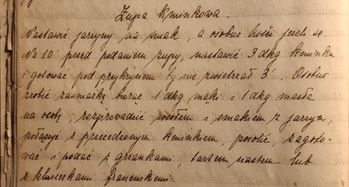 Zupa kminkowa.
Nastawić jarzyny na smak, a osobno kości jeśli są.
Na 10' przed podaniem zupy, nastawić 3 dkg kminku
i gotować pod przykryciem by nie zwietrzał 3'. Osobno
zrobić zasmażkę biorąc 1 dkg mąki i 1 dkg masła
na osobę, rozprowadzić rosołem i smakiem z jarzyn,
połączyć z przecedzonym kminkiem, posolić, zagoto-
wać i podać z grzankami, tartem ciastem lub
z kluseczkami francuskiemi.